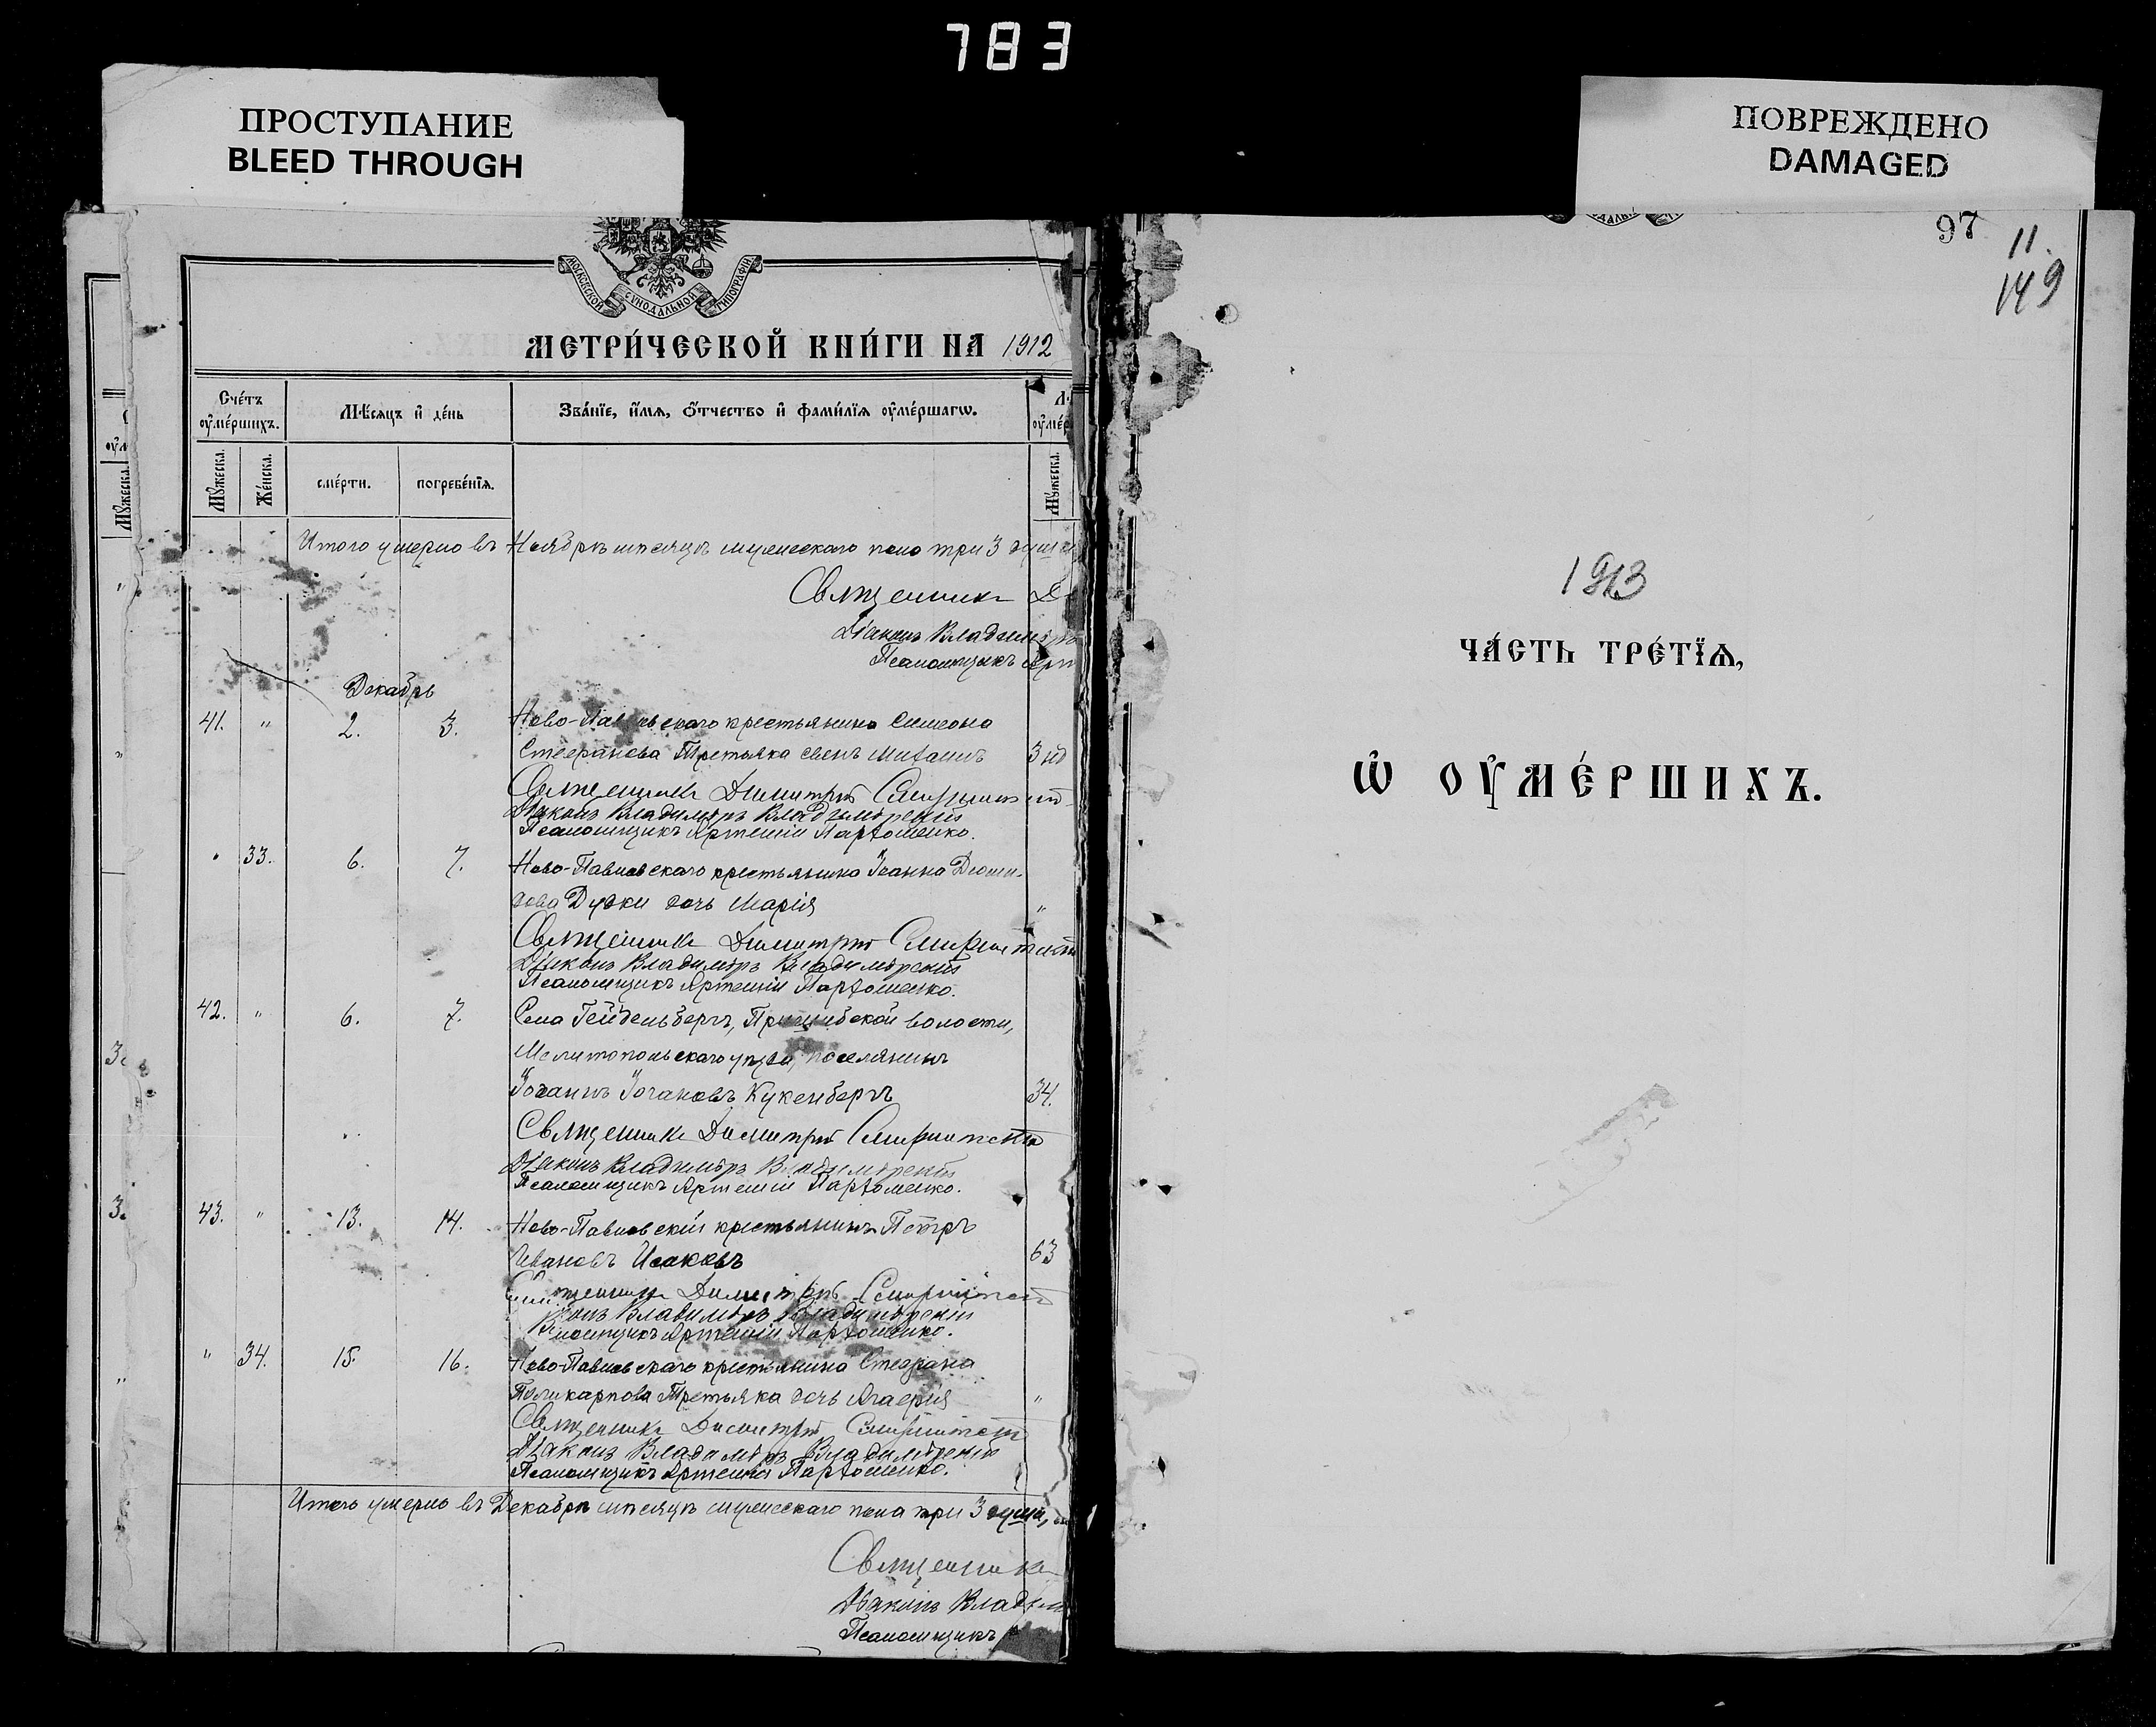 783
ПРОСТУПАНИЕ
BLEED THROUGH
ПОВРЕЖДЕНО
DAMAGED
МОСКОВСКОЙ СѴНОДАЛЬНОЙ ТИПОГРАФІИ
МЕТРИ́ЧЕСКОЙ КНИ́ГИ НА 1912
Сче́тъ оу҆ме́ршихъ.
Мѣ́сяцъ и҆ де́нь
Зва́нїе, и҆́мѧ, ѻ҆́тчество и҆ фами́лїѧ оу҆ме́ршагѡ.
Мꙋжеска.
Же́нска.
сме́рти.
погребе́нїѧ.
Мꙋ́жеска.
Итого умерло въ Ноябрѣ мѣсяцѣ мужескаго пола три 3 душ
Священникъ
Діаконъ Владимі
Псаломщикъ Арт
Декабрь
41. " 2. 3. Ново-Павловскаго крестьянина Симеона
Стефанова Третьяка сынъ Михаилъ 3
Священникъ Димитрій
Діаконъ Владиміръ Владимірскій
Псаломщикъ Артемій Парѳоменко.
" 33. 6. 7. Ново-Павловскаго крестьянина Іоанна
Дудки дочь Марія "
Священникъ Димитрій
Діаконъ Владиміръ Владимірскій
Псаломщикъ Артемій Парѳоменко.
42. " 6. 7. Села Гейдельбергъ, Пришибской волости,
Мелитопольскаго уѣзда, поселянинъ
Іоганнъ Іогановъ Кукенбергъ 34.
Священникъ Димитрій
Діаконъ Владиміръ Владимірскій
Псаломщикъ Артемій Парѳоменко.
43. " 13. 14. Ново-Павловскій крестьянинъ Петръ
Ивановъ Исаковъ 63
Священникъ Димитрій
Діаконъ Владиміръ Владимірскій
Псаломщикъ Артемій Парѳоменко.
" 34. 15. 16. Ново-Павловскаго крестьянина Стефана
Поликарпова Третьяка дочь Агафія "
Священникъ Димитрій
Діаконъ Владиміръ Владимірскій
Псаломщикъ Артемій Парѳоменко.
Итого умерло въ Декабрѣ мѣсяцѣ мужескаго пола три 3 души,
Священникъ
Діаконъ Владим
Псаломщикъ
97
11.
149
1913
ЧА́СТЬ ТРЕ́ТЇѦ,
Ѡ҆ ОУ҆МЕ́РШИХЪ.